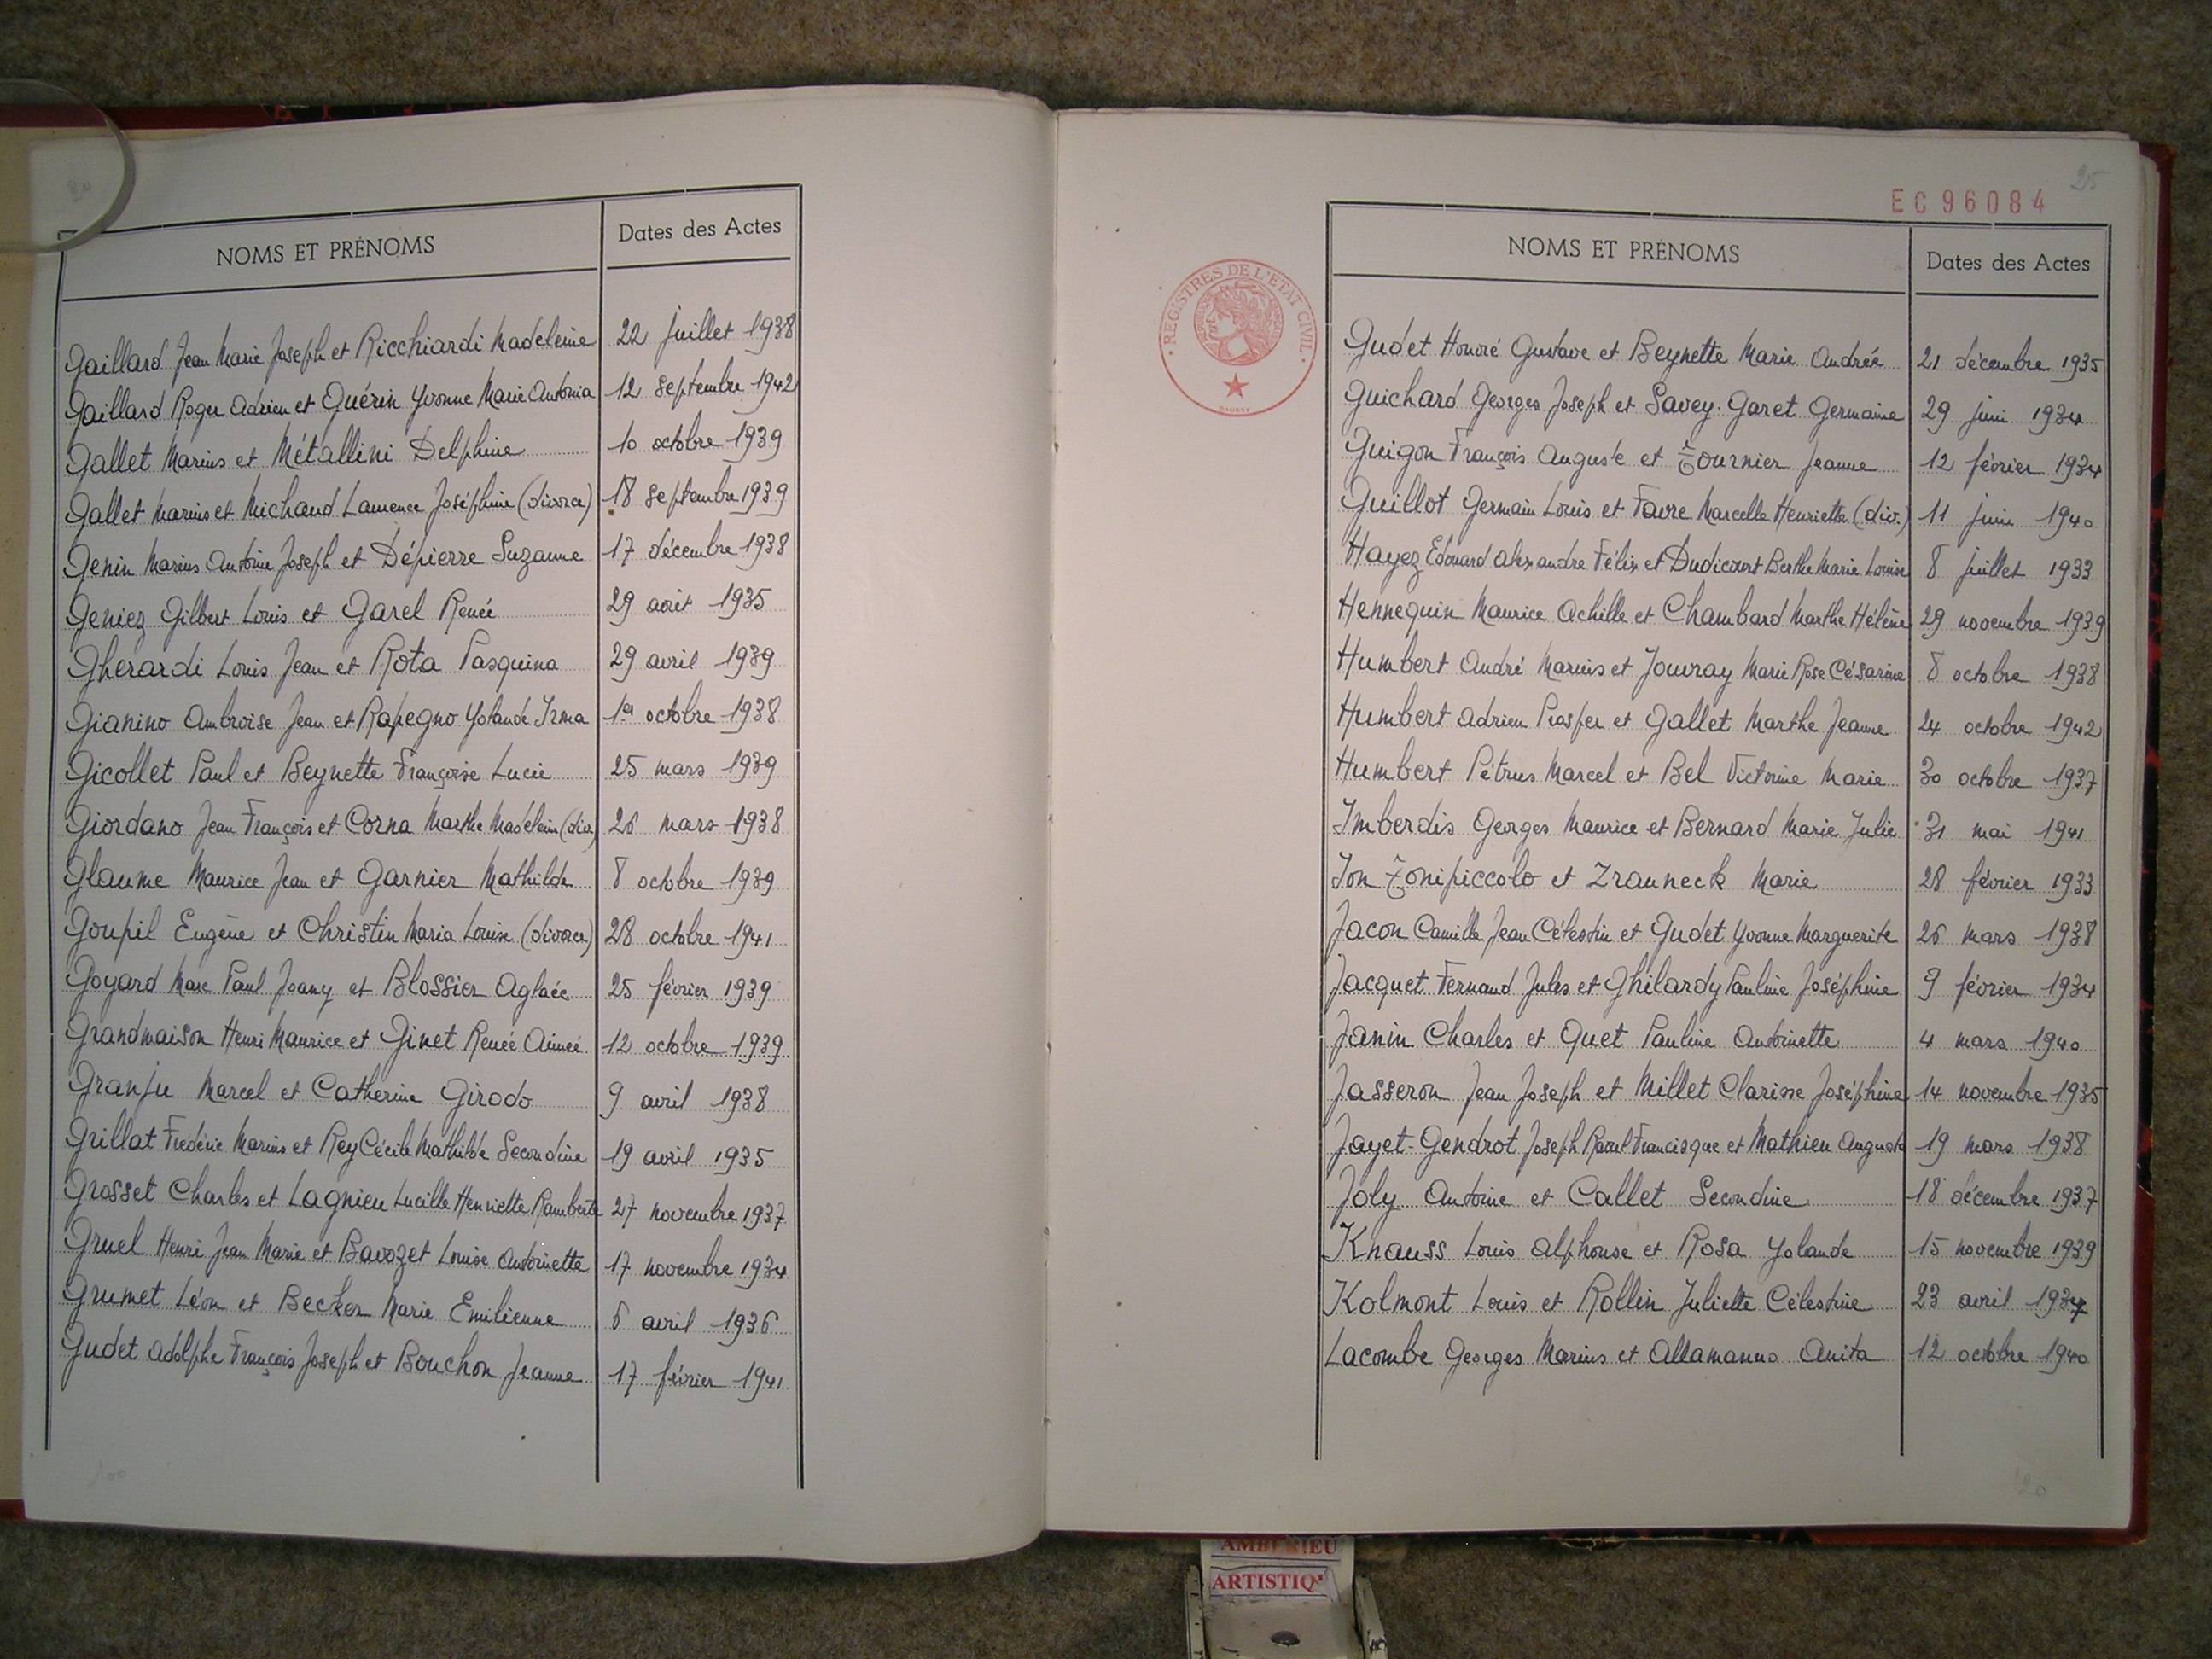 NOMS ET PRÉNOMS Dates des Actes
Gaillard Jean Marie Joseph et Ricchiardi Madeleine 22 juillet 1938
Gaillard Roger Adrien et Guérin Yvonne Marie Antonia 12 septembre 1942
Gallet Marius et Métallini Delphine 10 octobre 1939
Gallet Marius et Michaud Laurence Joséphine (divorce) 18 septembre 1939
Genin Marius Antoine Joseph et Dépierre Suzanne 17 décembre 1938
Geniez Gilbert Louis et Garel Renée 29 août 1935
Gherardi Louis Jean et Rota Pasquina 29 avril 1939
Gianino Ambroise Jean et Rapegno Yolande Irma 1er octobre 1938
Gicollet Paul et Beynette Françoise Lucie 25 mars 1939
Giordano Jean François et Corna Marthe Madelein (div.) 26 mars 1938
Glaume Maurice Jean et Garnier Mathilde 8 octobre 1939
Goupil Eugène et Christin Maria Louise (divorce) 28 octobre 1941
Goyard Marc Paul Joany et Blossier Aglaée 25 février 1939
Grandmaison Henri Maurice et Ginet Renée Aimée 12 octobre 1939
Granju Marcel et Catherine Girodo 9 avril 1938
Grillat Frédéric Marius et Rey Cécile Mathilde Secondine 19 avril 1935
Grosset Charles et Lagnieu Lucille Henriette Ramberte 27 novembre 1937
Gruel Henri Jean Marie et Bavozet Louise Antoinette 17 novembre 1934
Grumet Léon et Becker Marie Emilienne 6 avril 1936
Gudet Adolphe François Joseph et Bouchon Jeanne 17 février 1941
100
25
EC96084
REGISTRES DE L'ETAT CIVIL
NOMS ET PRÉNOMS Dates des Actes
Gudet Honoré Gustave et Beynette Marie Andrée 21 décembre 1935
Guichard Georges Joseph et Savey-Garet Germaine 29 juin 1934
Guigon François Auguste et Tournier Jeanne 12 février 1934
Guillot Germain Louis et Favre Marcelle Henriette (div.) 11 juin 1940
Hayez Edouard Alexandre Félix et Dudicourt Berthe Marie Louise 8 juillet 1933
Hennequin Maurice Achille et Chambard Marthe Hélène 29 novembre 1939
Humbert André Marius et Jouvray Marie Rose Césarine 8 octobre 1938
Humbert Adrien Prosper et Gallet Marthe Jeanne 24 octobre 1942
Humbert Pétrus Marcel et Bel Victorine Marie 30 octobre 1937
Imberdis Georges Maurice et Bernard Marie Julie 31 mai 1941
Ion Tonipiccolo et Zrauneck Marie 28 février 1933
Jacon Camille Jean Célestin et Gudet Yvonne Marguerite 26 mars 1938
Jacquet Fernand Jules et Ghilardy Pauline Joséphine 9 février 1934
Janin Charles et Quet Pauline Antoinette 4 mars 1940
Jasseron Jean Joseph et Millet Clarisse Joséphine 14 novembre 1935
Jayet-Gendrot Joseph Raoul Francisque et Mathieu Augusta 19 mars 1938
Joly Antoine et Callet Secondine 18 décembre 1937
Knauss Louis Alphonse et Rosa Yolande 15 novembre 1939
Kolmont Louis et Rollin Juliette Célestine 23 avril
Lacombe Georges Marius et Allamanno Anita 12 octobre 1940
AMBERIEU
ARTISTIQ